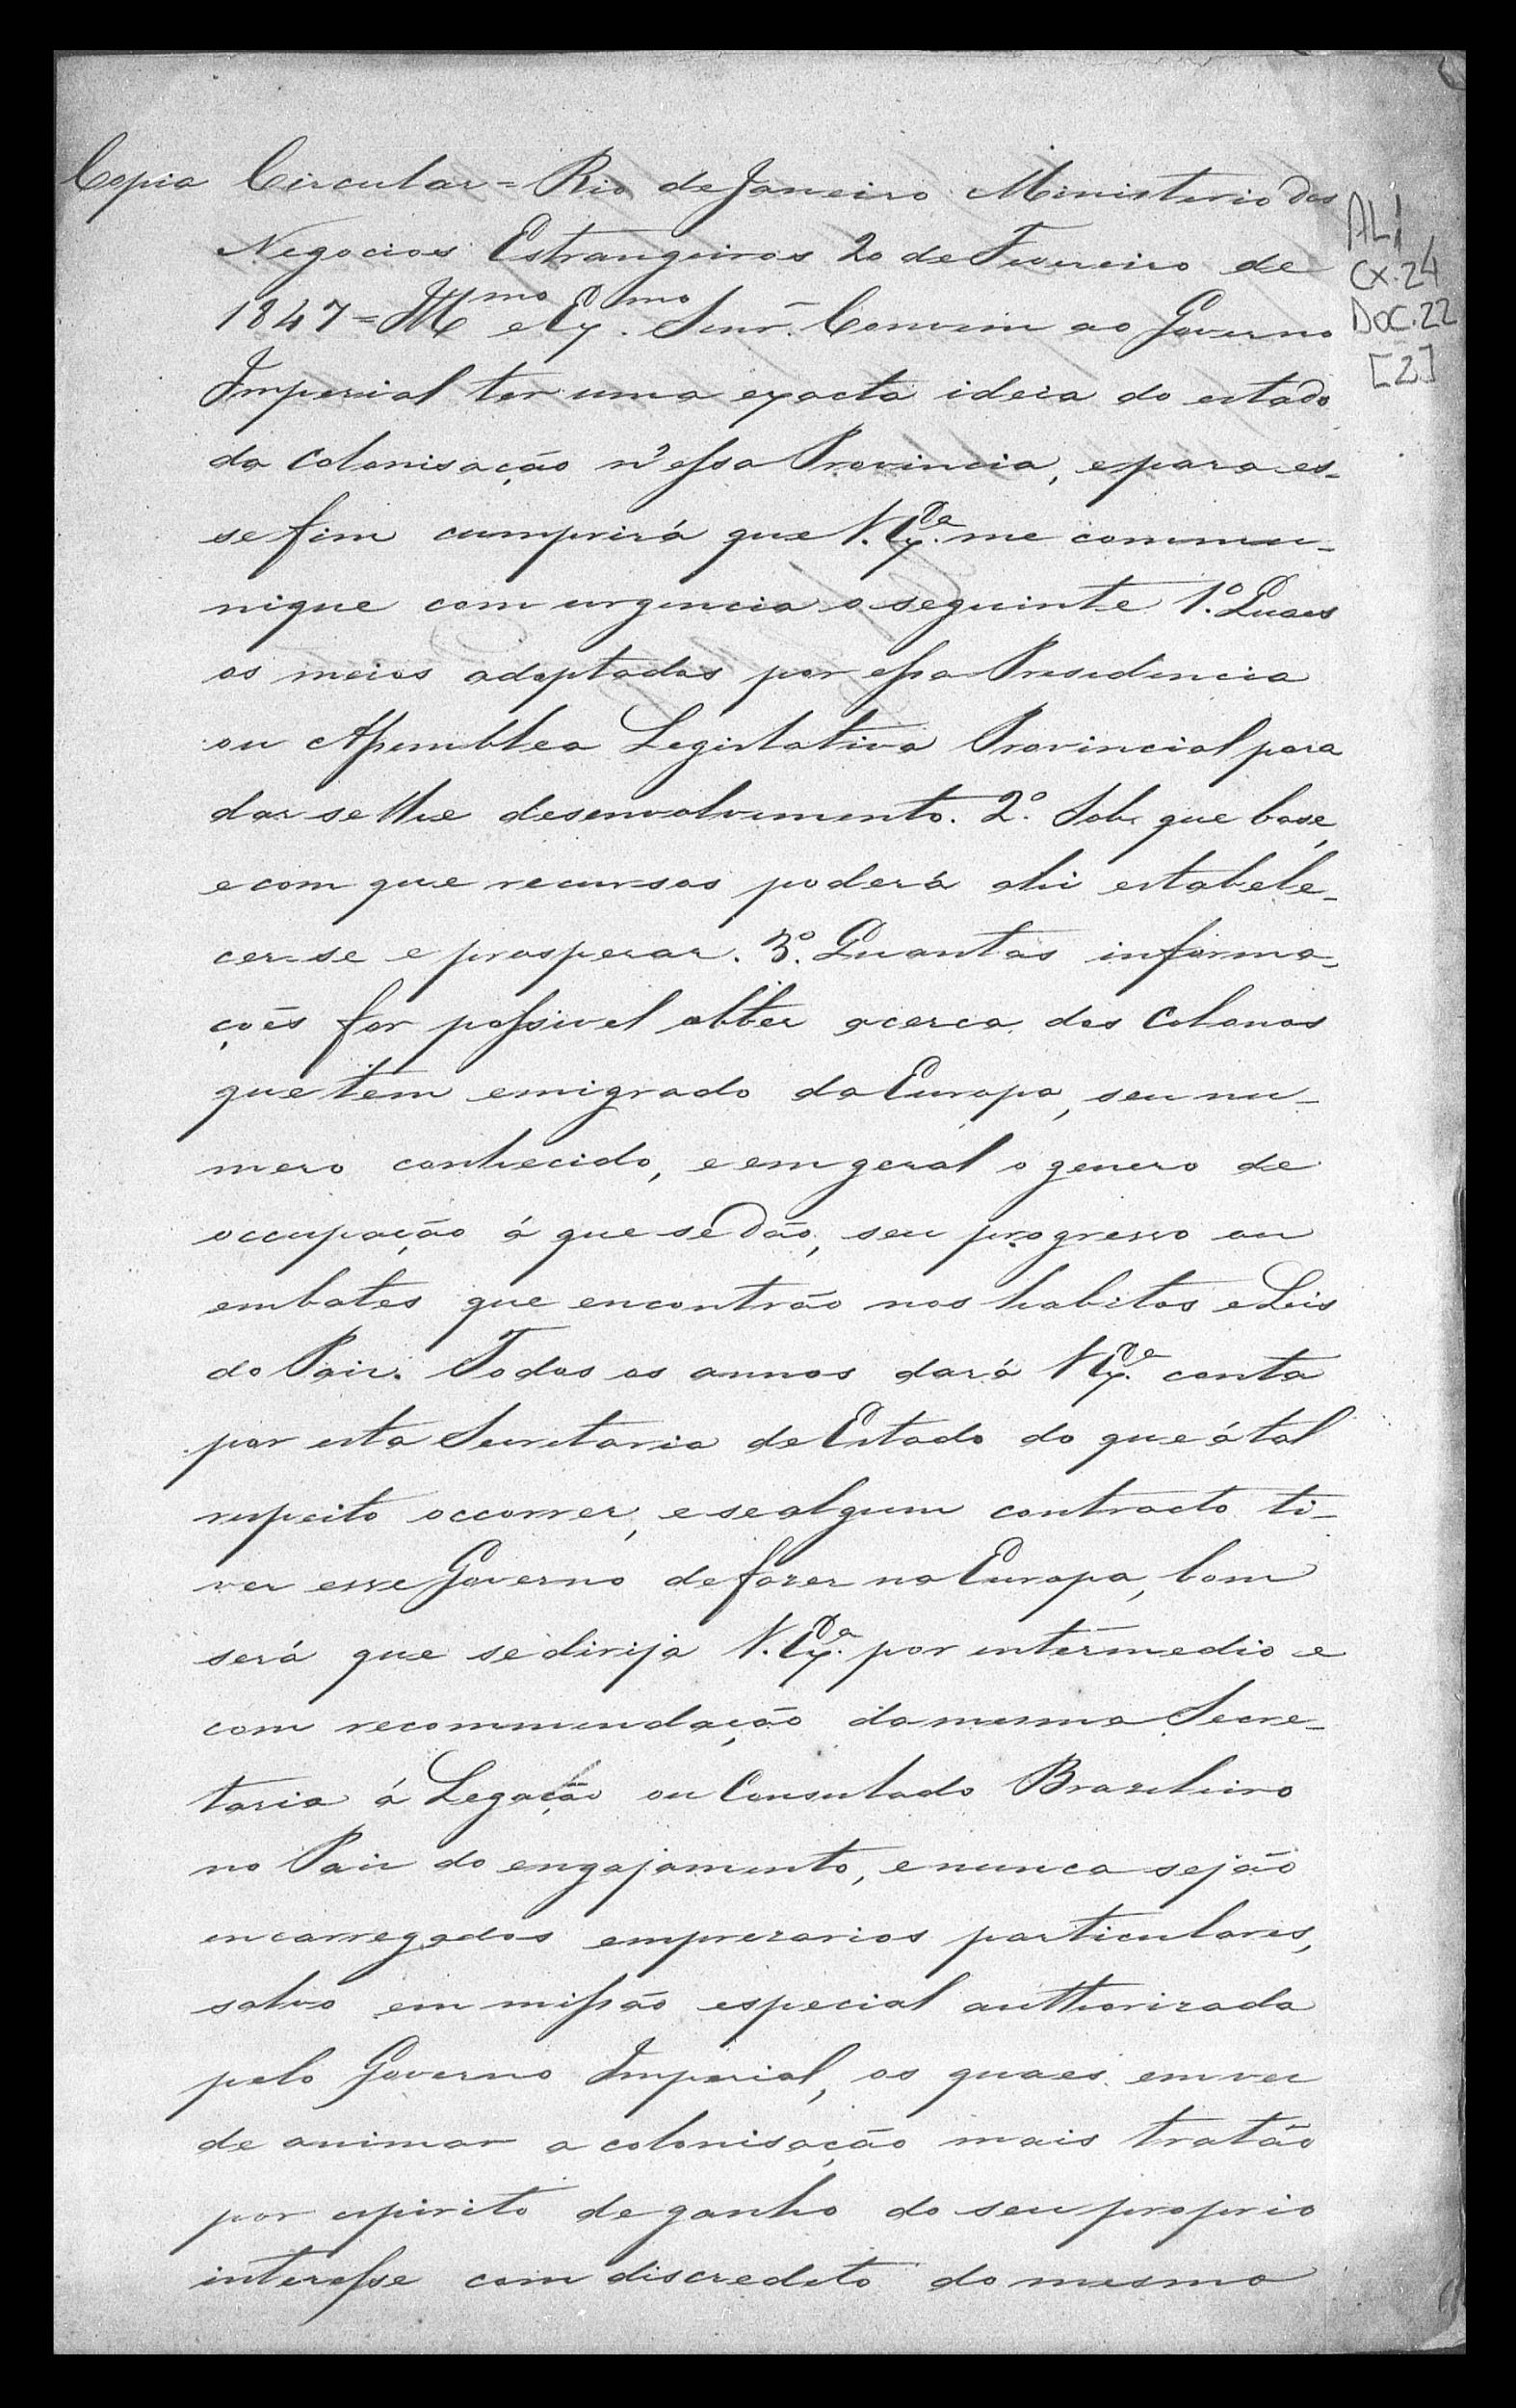 Copia Circular = Rio de Janeiro Ministerio dos
Negocios Estrangeiros 20 de Fevereiro de
1847 = Illmo e Exmo. Senr. Convem ao Governo
Imperial ter uma exacta ideia do estado
da colonisação n'essa Provincia, e para es-
se fim cumprirá que V. Exa. me commu-
nique com urgencia o seguinte 1.º Quaes
os meios adoptados por essa Presidencia
ou Assemblea Legislativa Provincial para
dar se lhe desenvolvimento. 2.º Sob que base,
e com que recursos poderá ahi estabele-
cer-se e prosperar. 3.º Quantas informa-
ções for possivel obter acerca dos Colonos
que tem emigrado da Europa, seu nu-
mero conhecido, e em geral o genero de
occupação á que se dão, seu progresso ou
embates que encontrão nos habitos e Leis
do Paiz. Todos os annos dará V Exa. conta
por esta Secretaria de Estado do que á tal
respeito occorrer, e se algum contracto ti-
ver esse Governo de fazer na Europa, bom
será que se dirija V. Exa. por intermedio e
com recommendação da mesma Secre-
taria á Legação ou Consulado Brazileiro
no Paiz do engajamento, e nunca sejão
encarregados emprezarios particulares,
salvo em missão especial authorizada
pelo Governo Imperial, os quaes em vez
de animar a colonisação mais tratão
por espirito de ganho do seu proprio
interesse com discredito do mesmo
AL1
CX.24
DOC.22
[2]